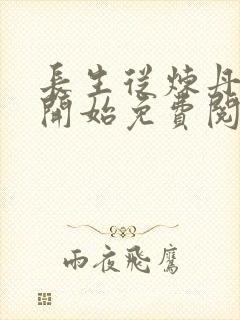 長生從煉丹
開始免費閱
雨夜飛鷹